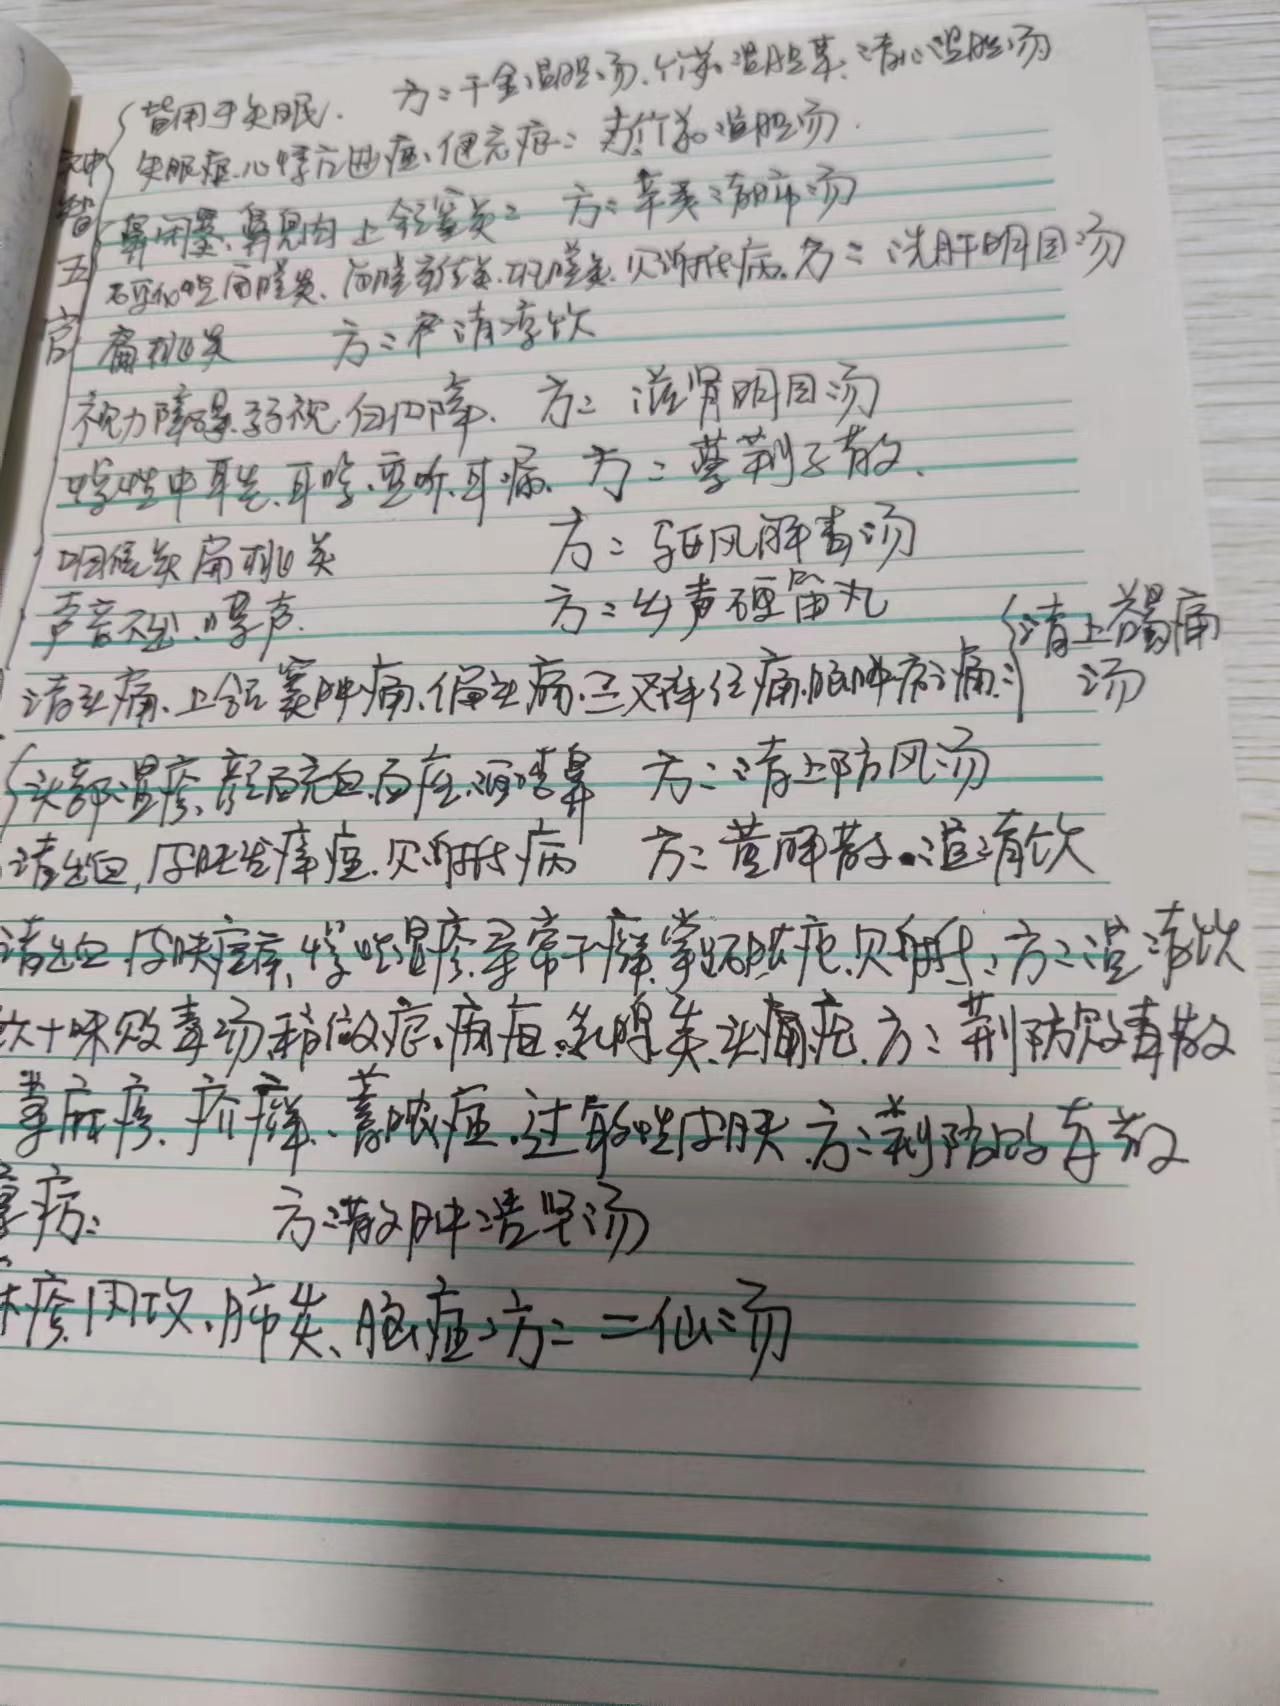 皆用于失眠. 方:千金温胆汤、竹茹温胆某、清心温胆汤
失眠症、心悸亢进症、健忘症: 竹茹温胆汤.
神智五官
鼻闭塞、鼻息肉 上颌窦炎: 方:辛夷清肺汤
角膜炎、巩膜炎、贝谢氏病、方:洗肝明目汤
扁桃炎 方: 清凉饮
视力障碍、弱视、白内障、方: 滋肾明目汤
中耳炎、耳鸣、重听、耳漏、方:蔓荆子散、
咽候炎 扁桃炎 方:驱风解毒汤
声音不出、嘎声. 方:响声破笛丸
诸头痛、上颌窦肿痛、偏头痛、三叉神经痛、眼肿疡痛: 清上蠲痛汤
头部湿疹、颜面充血、面疮、酒渣鼻 方:清上防风汤
诸出血,皮肤发痒症、贝谢氏病 方:黄解散、温清饮
诸出血 皮肤痒、慢性湿疹、寻常干癣、掌跖脓疱、贝谢氏: 方:温清饮
次十味败毒汤稍微症、痈疽、乳腺炎、头疮、方:荆防败毒散
荨麻疹、疥癣、蓄脓症、过敏性皮肤 方:荆防败毒散
方:散肿溃坚汤
疹内攻、肺炎、脑症: 方:二仙汤